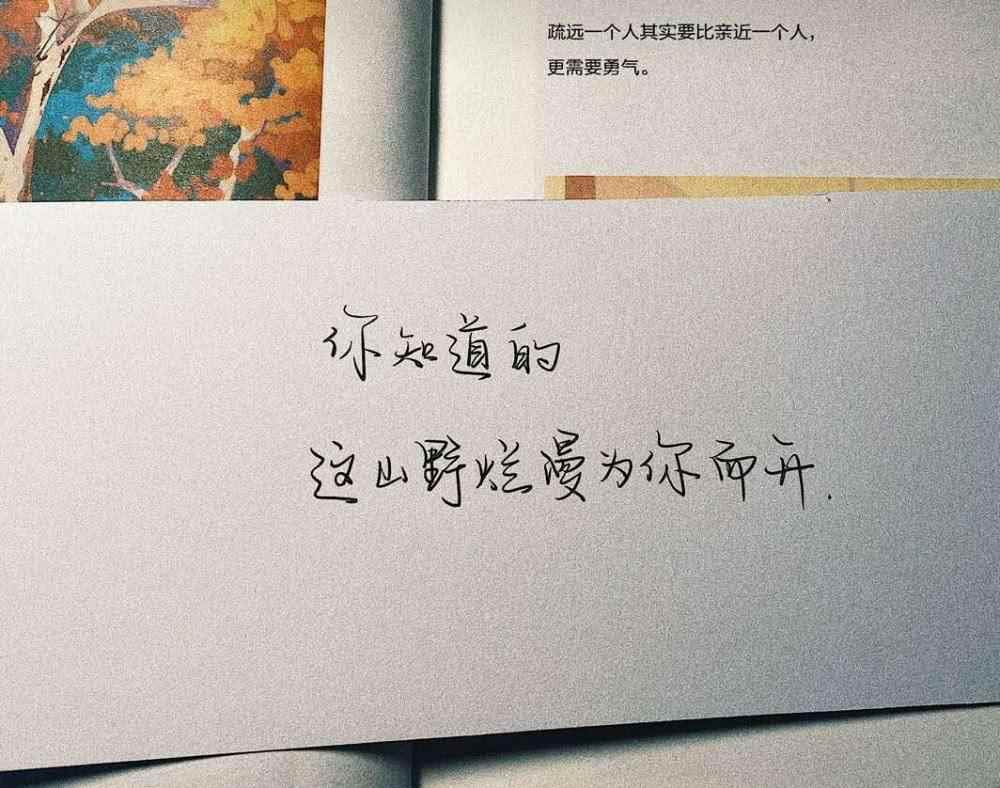 疏远一个人其实要比亲近一个人，
更需要勇气。
你知道的
这山野烂漫为你而开.